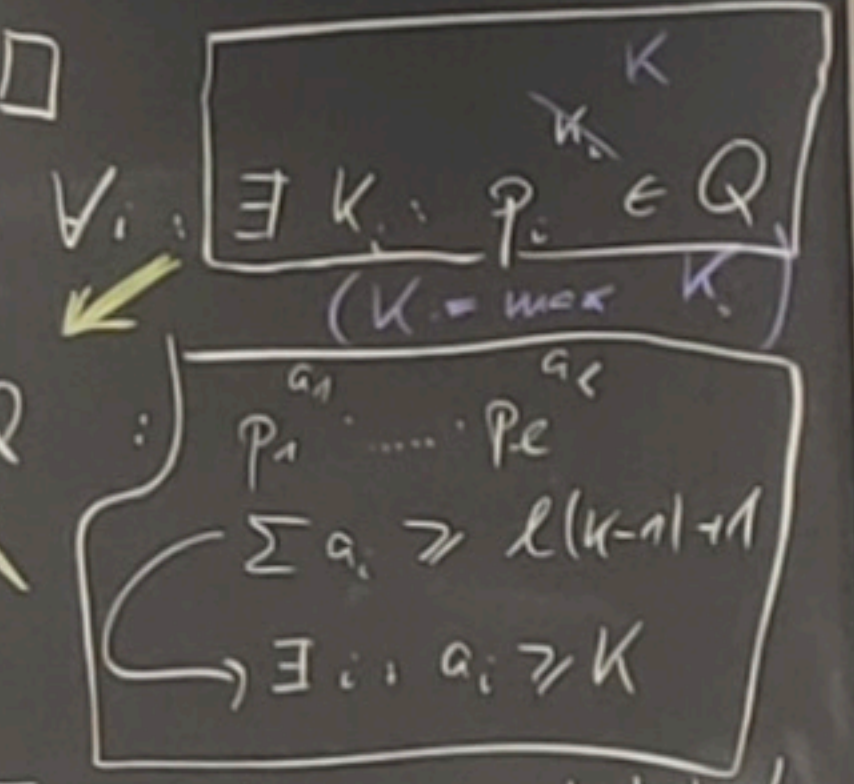 □
∀i : ∃ K_i : p_i^K ∈ Q
(K := max K_i)
: p_1^{a_1} ····· p_ℓ^{a_ℓ}
Σ a_i ⩾ ℓ(K-1)+1
∃ i : a_i ⩾ K